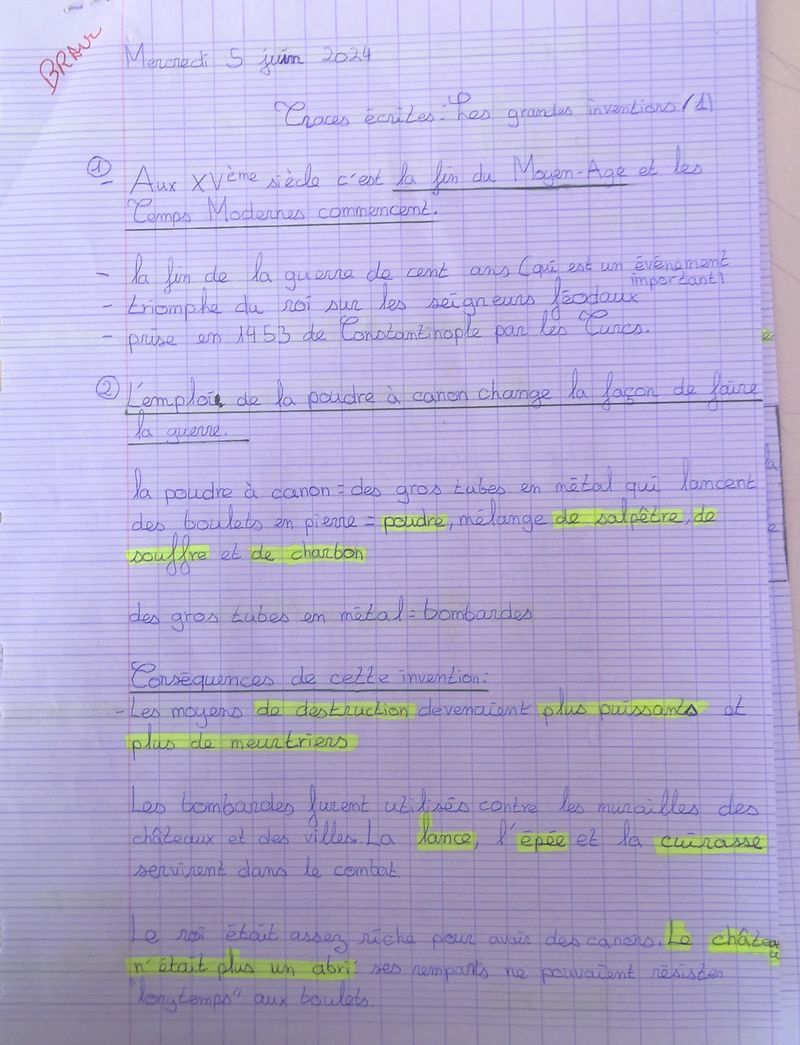 BRAV
Mercredi 5 juin 2024
Traces écrites: Les grandes inventions (1)
① Aux XVème siècle c'est la fin du Moyen-Age et les
Temps Modernes commencent.
- la fin de la guerre de cent ans (qui est un événement
important)
- triomphe du roi sur les seigneurs féodaux
- prise en 1453 de Constantinople par les Turcs.
② L'emploi de la poudre à canon change la façon de faire
la guerre.
la poudre à canon = des gros tubes en métal qui lancent
des boulets en pierre = poudre, mélange de salpêtre, de
souffre et de charbon
des gros tubes en métal = bombardes
Conséquences de cette invention:
- Les moyens de destruction devenaient plus puissants et
plus de meurtriers
Les bombardes furent utilisés contre les murailles des
châteaux et des villes. La lance, l'épée et la cuirasse
servirent dans le combat.
Le roi était assez riche pour avoir des canons. Le château
n'était plus un abri ses remparts ne pouvaient résister
"longtemps" aux boulets.